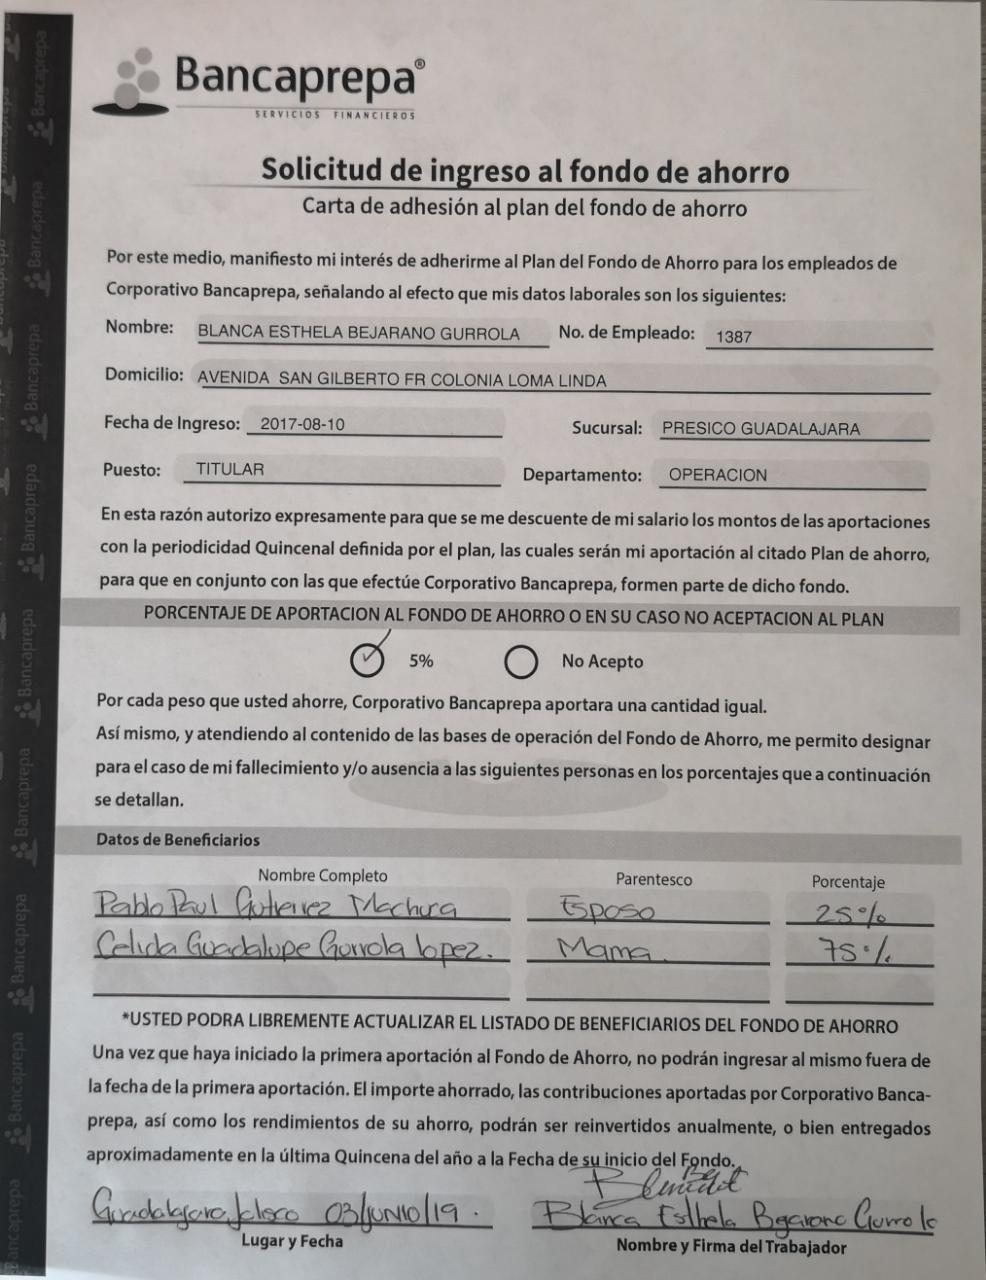 Bancaprepa®
SERVICIOS FINANCIEROS
Solicitud de ingreso al fondo de ahorro
Carta de adhesión al plan del fondo de ahorro
Por este medio, manifiesto mi interés de adherirme al Plan del Fondo de Ahorro para los empleados de
Corporativo Bancaprepa, señalando al efecto que mis datos laborales son los siguientes:
Nombre: BLANCA ESTHELA BEJARANO GURROLA No. de Empleado: 1387
Domicilio: AVENIDA SAN GILBERTO FR COLONIA LOMA LINDA
Fecha de Ingreso: 2017-08-10 Sucursal: PRESICO GUADALAJARA
Puesto: TITULAR Departamento: OPERACION
En esta razón autorizo expresamente para que se me descuente de mi salario los montos de las aportaciones
con la periodicidad Quincenal definida por el plan, las cuales serán mi aportación al citado Plan de ahorro,
para que en conjunto con las que efectúe Corporativo Bancaprepa, formen parte de dicho fondo.
PORCENTAJE DE APORTACION AL FONDO DE AHORRO O EN SU CASO NO ACEPTACION AL PLAN
5% No Acepto
Por cada peso que usted ahorre, Corporativo Bancaprepa aportara una cantidad igual.
Así mismo, y atendiendo al contenido de las bases de operación del Fondo de Ahorro, me permito designar
para el caso de mi fallecimiento y/o ausencia a las siguientes personas en los porcentajes que a continuación
se detallan.
Datos de Beneficiarios
Nombre Completo Parentesco Porcentaje
Pablo Paul Gutierrez Machuca Esposo 25%
Celida Guadalupe Gurrola lopez. Mama. 75%
*USTED PODRA LIBREMENTE ACTUALIZAR EL LISTADO DE BENEFICIARIOS DEL FONDO DE AHORRO
Una vez que haya iniciado la primera aportación al Fondo de Ahorro, no podrán ingresar al mismo fuera de
la fecha de la primera aportación. El importe ahorrado, las contribuciones aportadas por Corporativo Banca-
prepa, así como los rendimientos de su ahorro, podrán ser reinvertidos anualmente, o bien entregados
aproximadamente en la última Quincena del año a la Fecha de su inicio del Fondo.
Guadalajara, Jalisco 03/JUNIO/19. Blanca Esthela Bejarano Gurrola
Lugar y Fecha Nombre y Firma del Trabajador